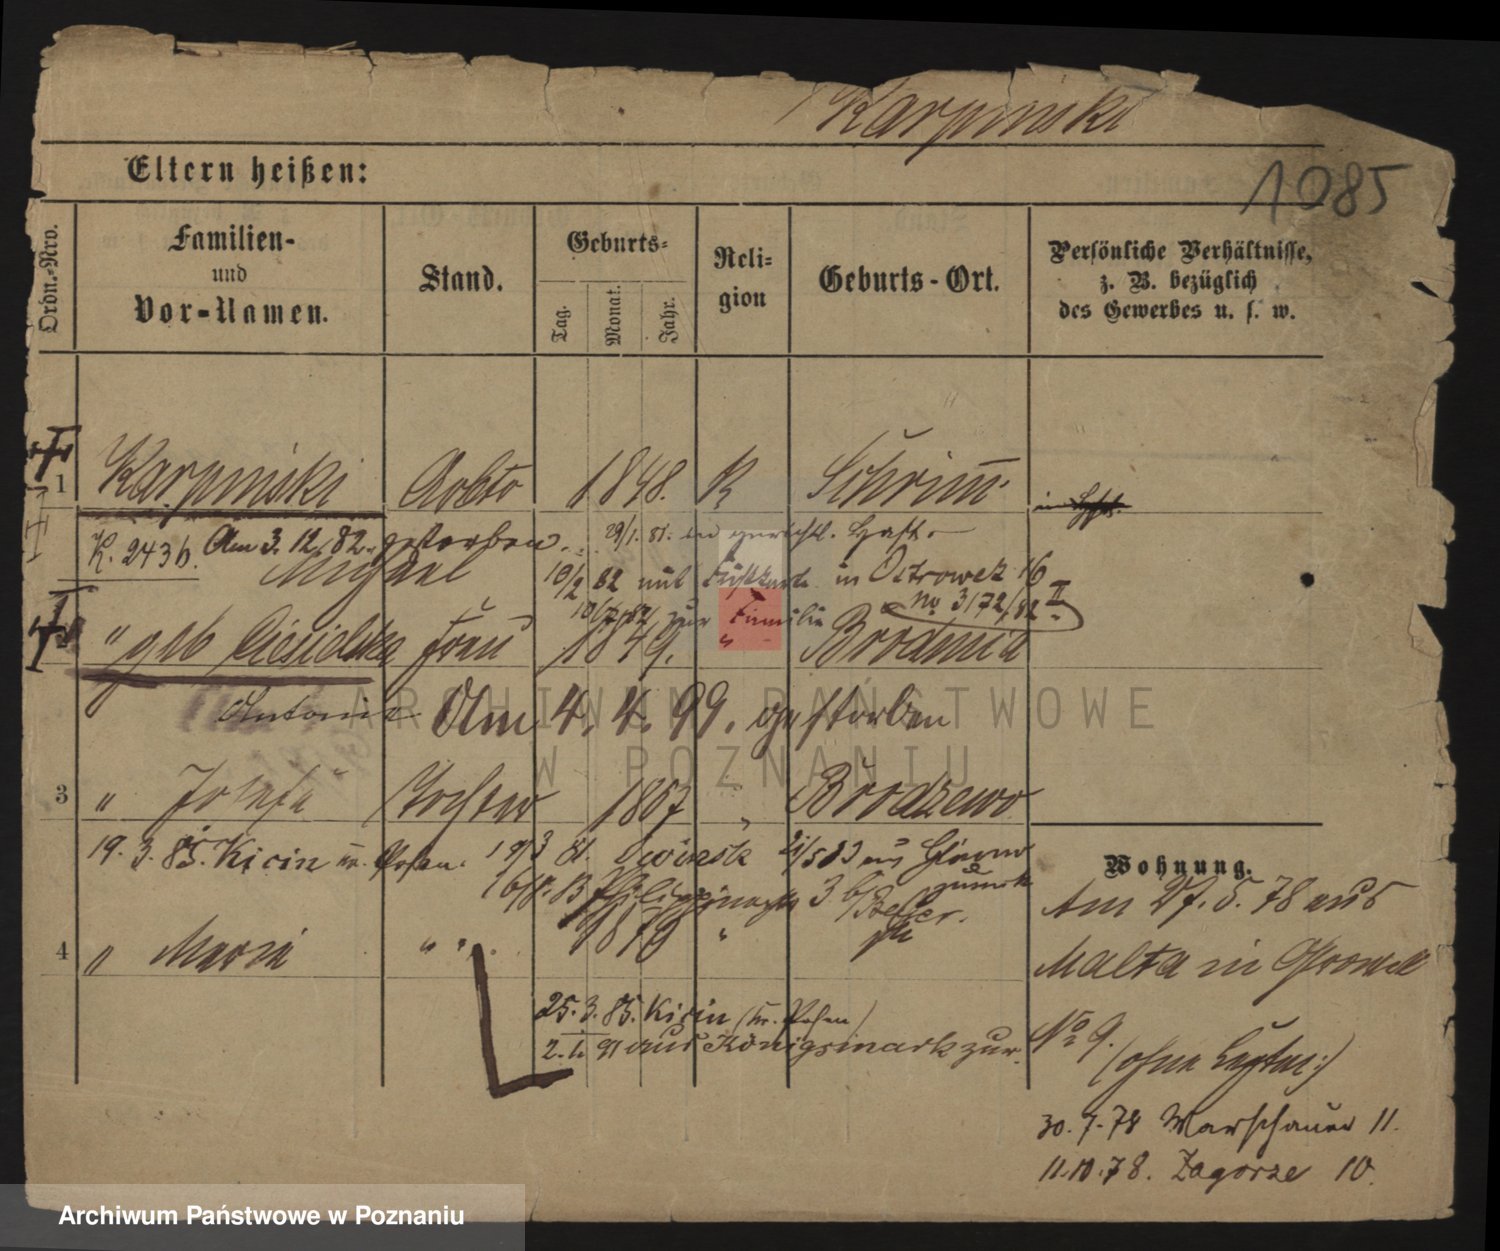 Karpinski
Eltern heißen:
1085
Ordn.-Nro.
Familien-
und
Vor-Namen.
Stand.
Geburts-
Tag.
Monat.
Jahr.
Reli-
gion
Geburts-Ort.
Persönliche Verhältnisse,
z. B. bezüglich
des Gewerbes u. s. w.
1 Karpinski Arbtr 1848. K Schrimm
K. 2436. Am 3. 12. 82. gestorben. 29/1. 81. gerichtl. Haft.
Michael 10/2 82 mit in Ostrowek 16
10/7 82 zur Familie No 3172/82 II
2 " geb Ciesielska Frau 1849. " Brodnica
Antonie Am 4. 4. 99. gestorben
3 " Josefa Tochter 1867 " Brodzewo
19. 3. 85. Kicin Kr. Posen. 19/3 81. 21/5 83 aus Glowno
zurück
Wohnung.
Am 27. 5. 78 aus
16/8. 83 3 b/ Beker.
4 " Maria " 1879 "
Malta in Gronek
25. 3. 85. Kicin (Kr. Posen)
No 9.
2. 1. 91 aus Königsmark zur.
(ohne
30. 7. 78 Warschauer 11.
11. 10. 78. Zagorze 10.
ARCHIWUM PAŃSTWOWE
W POZNANIU
Archiwum Państwowe w Poznaniu